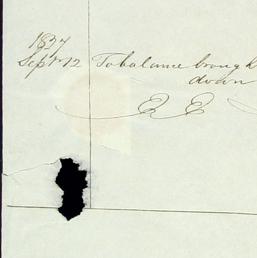 1837
Sept 12 To balance brough
down
E E